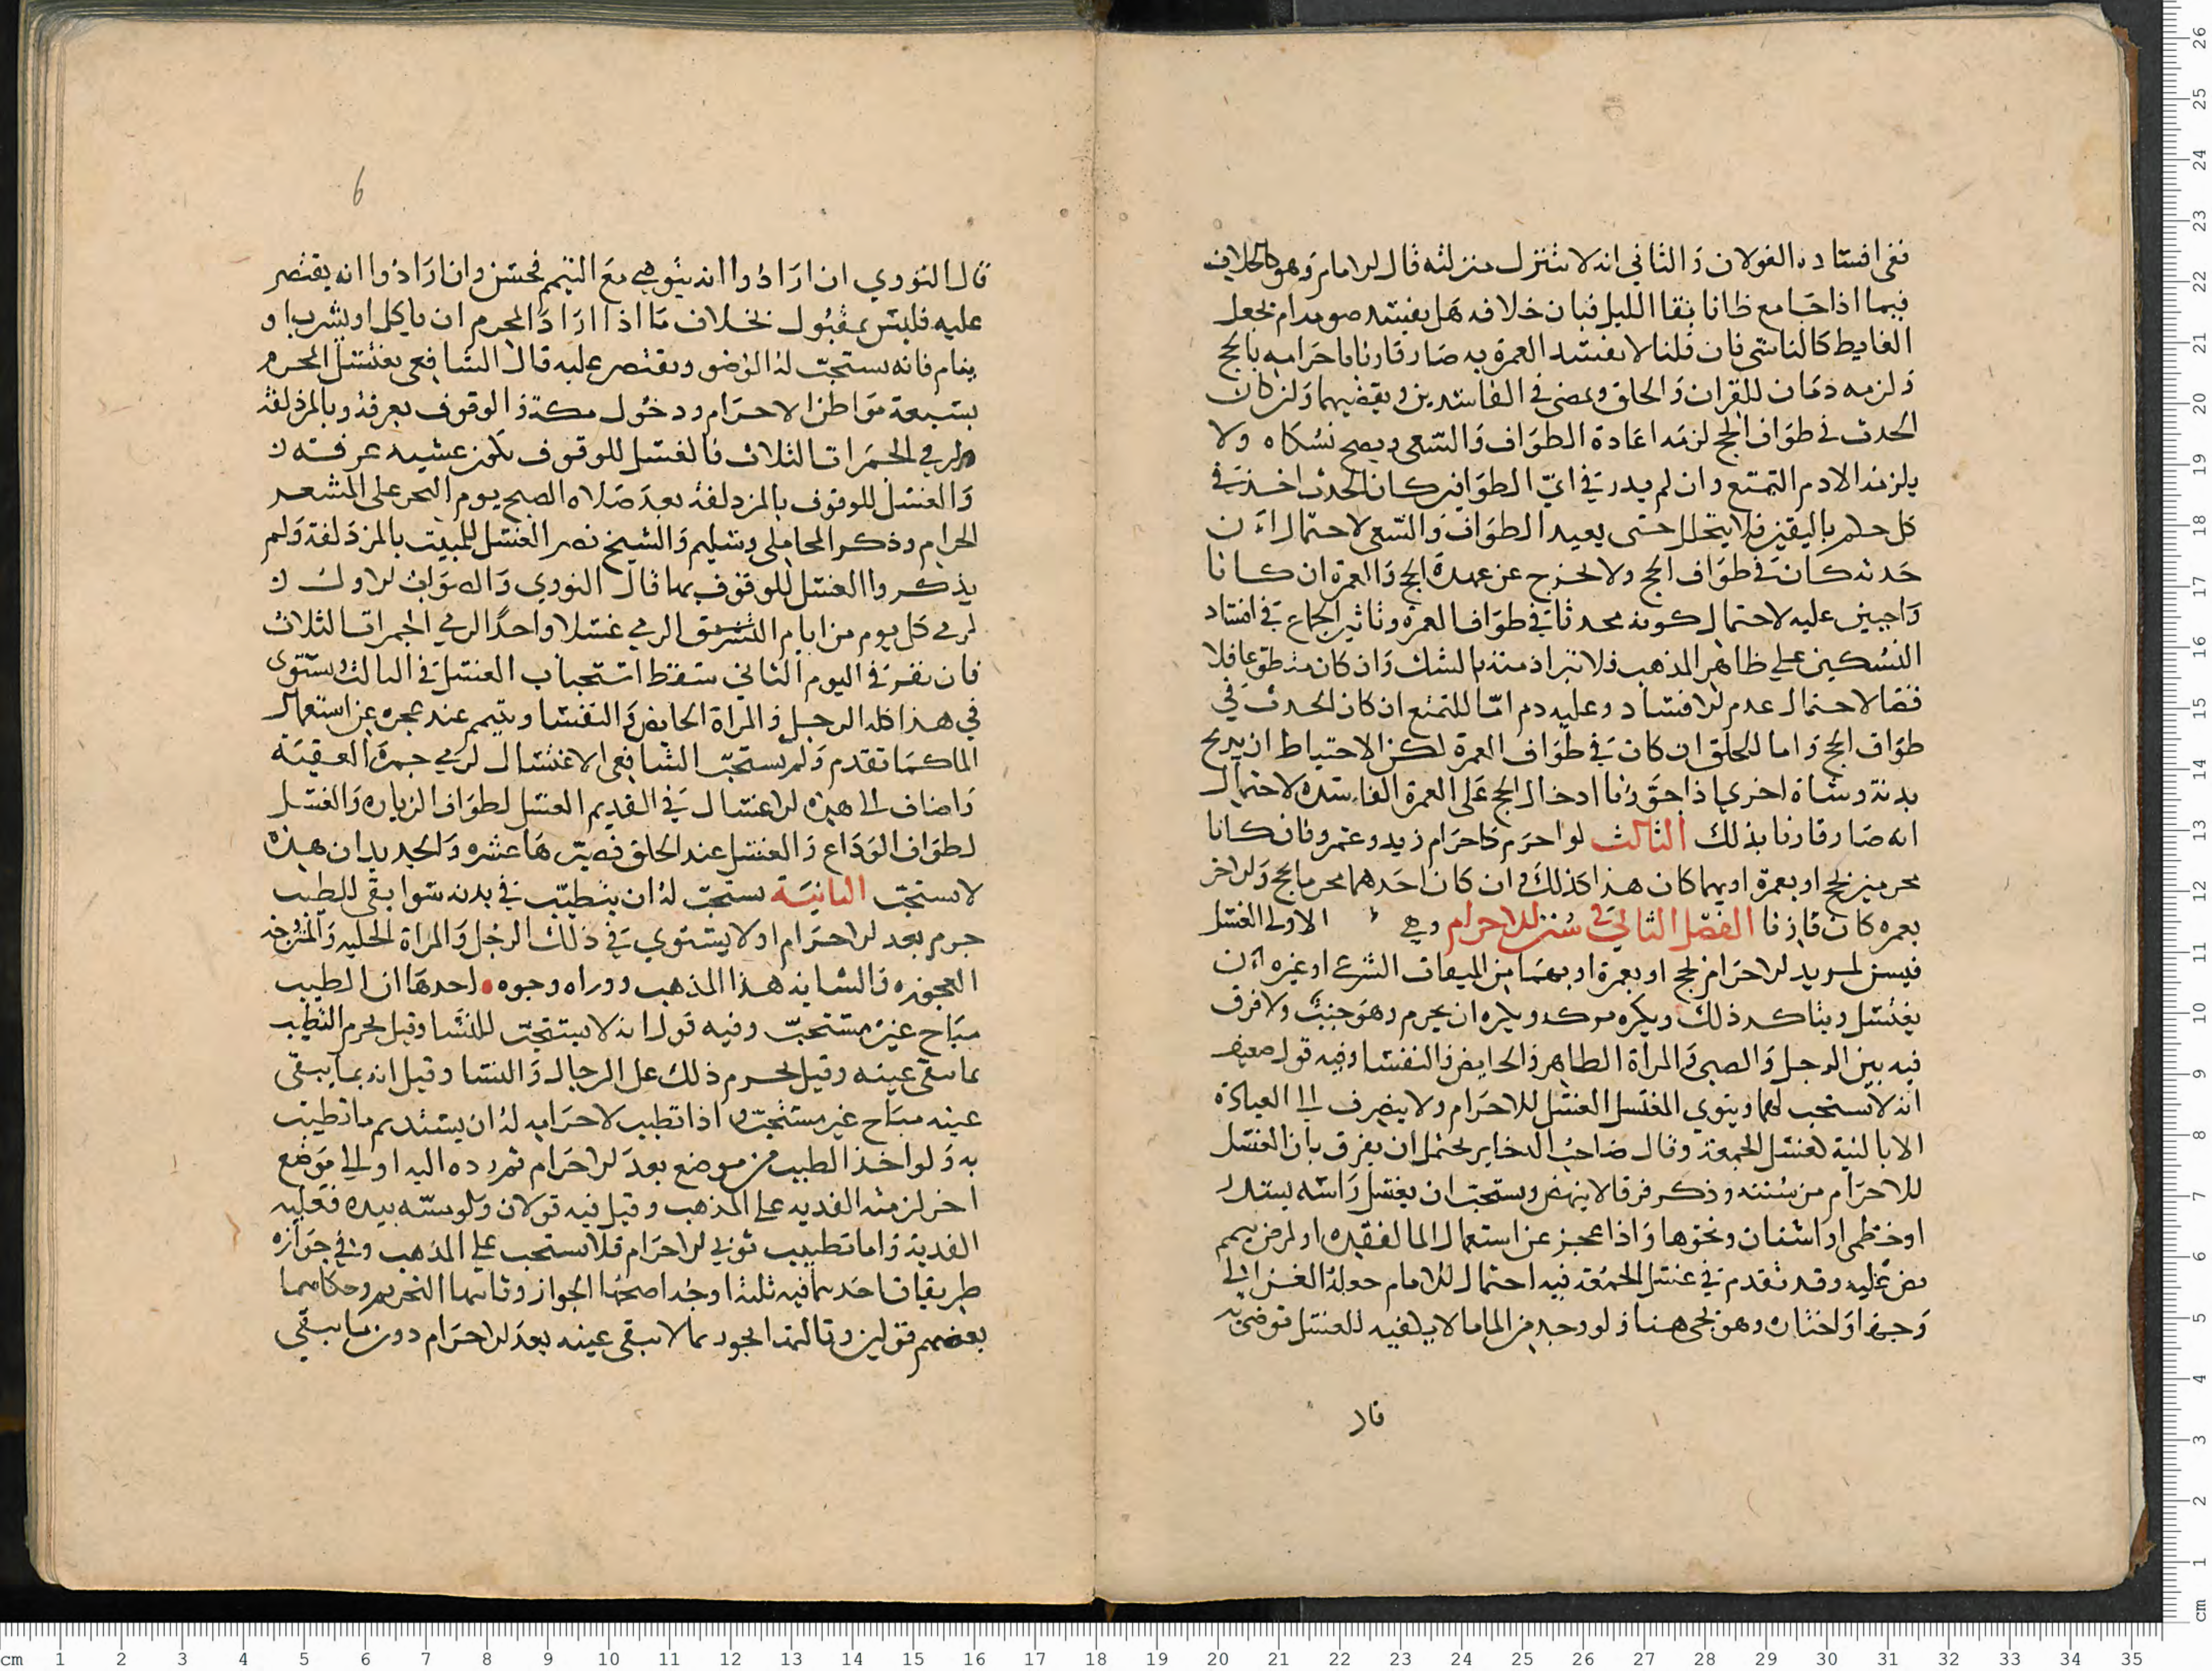 ففي افساده القولان والثاني انه لا ينتزل منزلته قال الامام وهو كالخلاف
فيما اذا جامع ظانا بقا الليل فبان خلافه هل يفسد صومه ام يجعل
الغايط كالناسي فان قلنا لا يفسد العمرة به صار قارنا باحرامه بالحج
ولزمه دمان للقران والحلق ويمضي في الفاسدين ويقضيهما وان كان
الحدث في طواف الحج لزمه اعادة الطواف والسعي ويصح نسكاه ولا
يلزمه الا دم التمتع وان لم يدر في اي الطوافين كان الحدث اخذ في
كل حكم باليقين فلا يتحلل حتى يعيد الطواف والسعي لاحتمال ان
حدثه كان في طواف الحج ولا يخرج عن عهدة الحج والعمرة ان كانا
واجبين عليه لاحتمال كونه محدثا في طواف العمرة وتاثير الجماع في افساد
النسكين على ظاهر المذهب فلا تبرا ذمته بالشك وان كان متطوعا فلا
قضا لاحتمال عدم الافساد وعليه دم اما للتمتع ان كان الحدث في
طواف الحج واما للحلق ان كان في طواف العمرة لكن الاحتياط ان يذبح
بدنة وشاة اخرى اذا جوزنا ادخال الحج على العمرة الفاسدة لاحتمال
انه صار قارنا بذلك الثالث لو احرم كاحرام زيد وعمرو فان كانا
محرمين بحج او بعمرة او بهما كان هذا كذلك وان كان احدهما محرما بحج والاخر
بعمره كان قارنا الفصل الثاني في سنن للاحرام وهي الاولى الغسل
فيسن لمريد الاحرام بحج او بعمرة او بهما من الميقات الشرعي او غيره ان
يغتسل ويتاكد ذلك ويكره تركه ويكره ان يحرم وهو جنب ولا فرق
فيه بين الرجل والصبي والمراة الطاهر والحايض والنفسا وفيه قول ضعيف
انه لا يستحب لهما وينوي المغتسل الغسل للاحرام ولا ينصرف الى العبادة
الا بالنية كغسل الجمعة وقال صاحب الدخاير يحتمل ان يفرق بان الغسل
للاحرام من سننه وذكر فرقا لا ينهض ويستحب ان يغسل راسه بسدر
او خطمي او اشنان ونحوها واذا عجز عن استعمال الما لفقده او لمرض تيمم
نص عليه وقد تقدم في غسل الجمعة فيه احتمال للامام جعله الغزالي
وجها واختاره وهو يجي هنا ولو وجد من الما ما لا يكفيه للغسل توضي به
قال
6
قال النووي ان ارادوا انه يتوضي مع التيمم فحسن وان ارادوا انه يقتصر
عليه فليس بمقبول بخلاف ما اذا اراد المحرم ان ياكل او يشرب او
ينام فانه يستحب له الوضو ويقتصر عليه قال الشافعي يغتسل المحرم
بسبعة مواطن الاحرام ودخول مكة والوقوف بعرفة وبالمزدلفة
ولرمي الجمرات الثلاث فالغسل للوقوف يكون عشيه عرفه
والغسل للوقوف بالمزدلفة بعد صلاه الصبح يوم النحر على المشعر
الحرام وذكر المحاملي وسليم والشيخ نصر الغسل للمبيت بالمزدلفة ولم
يذكروا الغسل للوقوف بها قال النووي والصواب الاول
لرمي كل يوم من ايام التشريق الرمي غسلا واحدا لرمي الجمرات الثلاث
فان نفر في اليوم الثاني سقط استحباب الغسل في الثالث ويستوي
في هذا كله الرجل والمراة الحايض والنفسا ويتيمم عند عجزه عن استعمال
الما كما تقدم ولم يستحب الشافعي الاغتسال لرمي جمرة العقبة
واضاف الى هذه الاغتسال في القديم الغسل لطواف الزياره والغسل
لطواف الوداع والغسل عند الحلق فصيرها عشره والجديد ان هذه
لا يستحب الثانية يستحب له ان يتطيب في بدنه سوا بقي للطيب
جرم بعد الاحرام او لا يستوي في ذلك الرجل والمراة الخليه والمزوجه
العجوزه والشابه هذا المذهب ووراه وجوه احدها ان الطيب
مباح غير مستحب وفيه قول انه لا يستحب للنسا وقيل يحرم التطيب
بما تبقى عينه وقيل يحرم ذلك على الرجال والنسا وقيل انه بما يبقى
عينه مباح غير مستحب واذا تطيب لاحرامه له ان يستديم ما تطيب
به ولو اخذ الطيب من موضع بعد الاحرام ثم رده اليه او الى موضع
اخر لزمته الفديه على المذهب وقيل فيه قولان ولو مسه بيده فعليه
الفدية واما تطييب ثوبي الاحرام فلا يستحب على المذهب وفي جوازه
طريقان احدهما فيه ثلثة اوجه اصحها الجواز وثانيها التحريم وحكاهما
بعضهم قولين وثالثها يجوز بما لا تبقى عينه بعد الاحرام دون ما يبقي